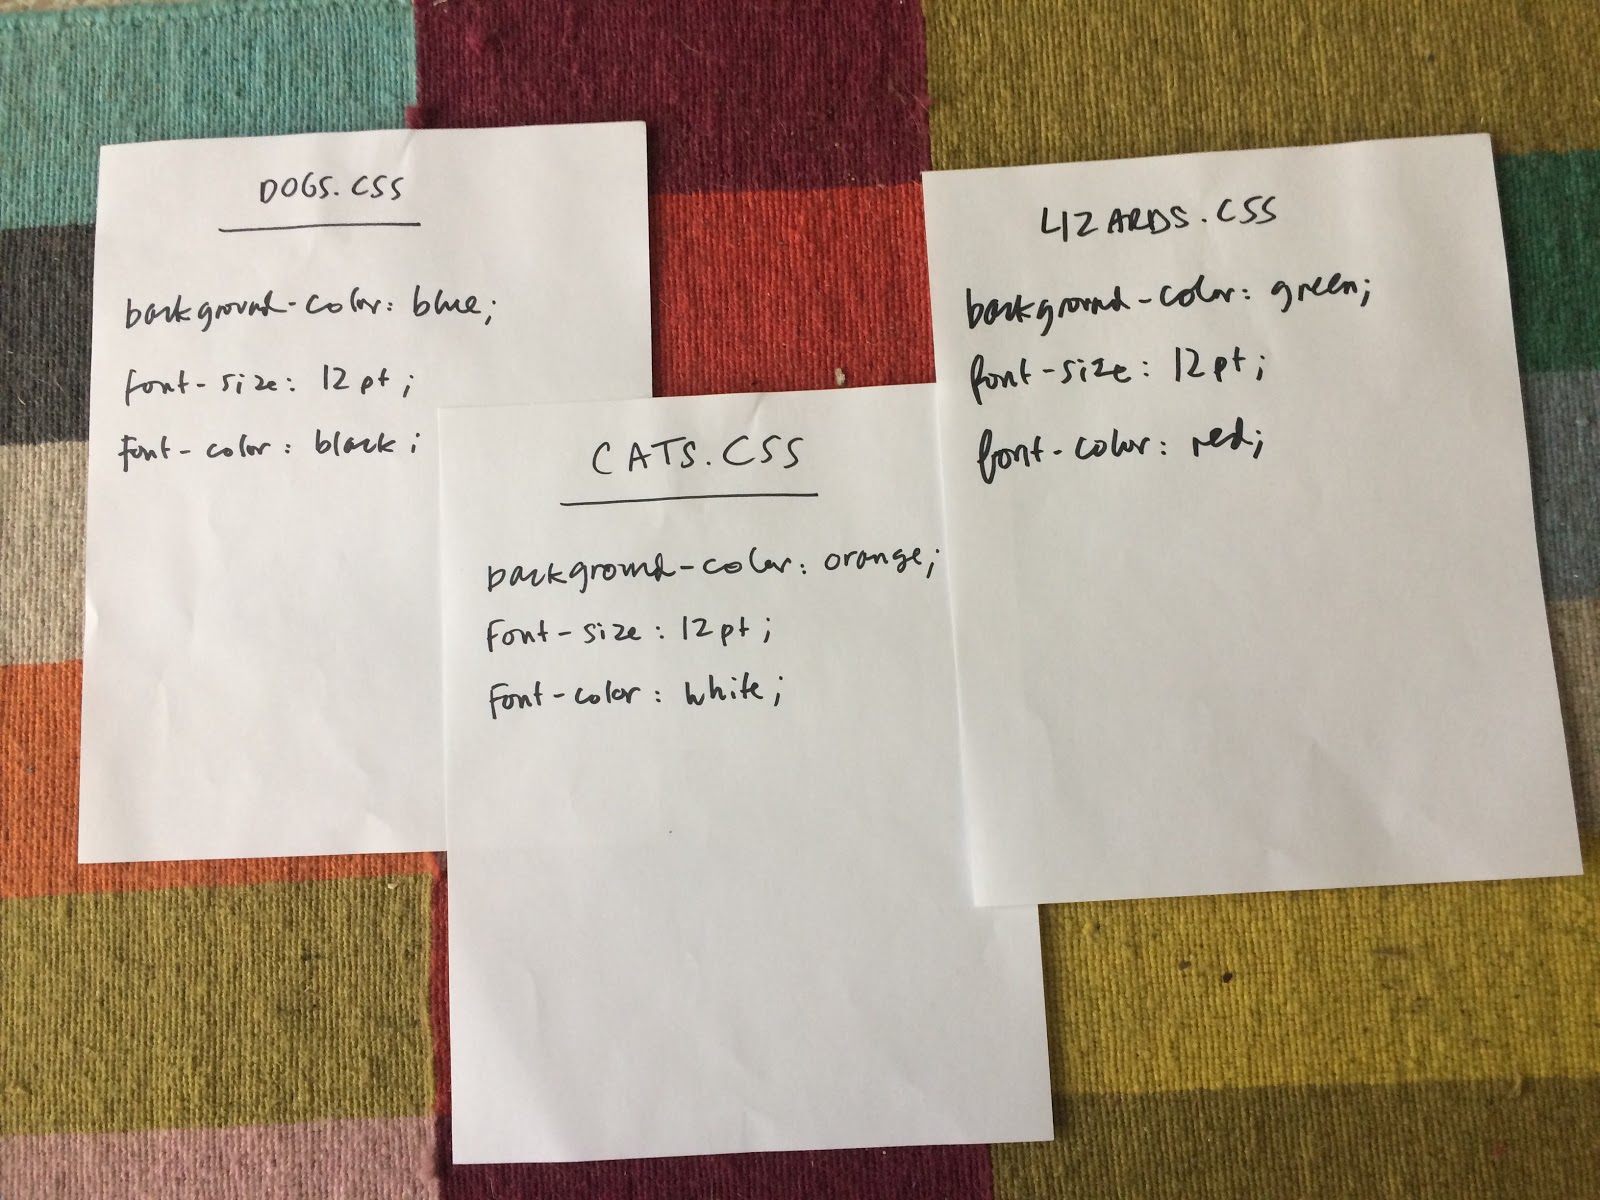 DOGS.CSS
background-color: blue;
font-size: 12pt;
font-color: black;
CATS.CSS
background-color: orange;
font-size: 12pt;
font-color: white;
LIZARDS.CSS
background-color: green;
font-size: 12pt;
font-color: red;